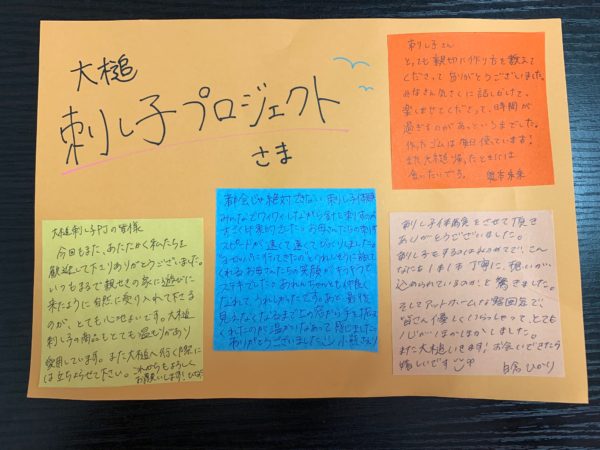 大槌
刺し子プロジェクト
さま
刺し子さん
とっても親切に作り方を教えて
くださって ありがとうございました。
みなさん気さくに話しかけて、
楽しませてくださって、時間が
過ぎるのがあっというまでした。
作ったゴムは毎日使っています!
また大槌 湯ったときには
会いたいです。
都会じゃ絶対できない刺し子体験
みんなでワイワイしながら針を刺すのが
すごく印象的でした。お母さんたちの
スピードが速くて速くてびっくりしました。
くれるお母さんたちの笑顔がキラキラで
ステキでした。
うれしかったです。
見えなくなるまで上の窓から手を振って
くれたのが温かいなあって感じました。
ありがとうございました
大槌刺し子PJの皆様
今回もまた、あたたかく私たちを
歓迎して下さりありがとうございました。
いつもまるで親せきの家に遊びに
来たように自然に受け入れて下さる
のが、とても心地よいです。大槌
刺し子の商品もとても温もりがあり
愛用しています。また大槌へ行く際に
は立ちよらせて下さい。これからもよろしく
お願いします!
刺し子体験をさせて頂き
ありがとうございました。
刺し子をするのははじめてで、こん
なにも1本1本丁寧に、想いが
込められているのか、と驚きました。
そしてアットホームな雰囲気で、
皆さん優しくいらっしゃって、とても
心がぽかぽかしました。
また大槌いきます!お会いできたら
嬉しいです
ひかり